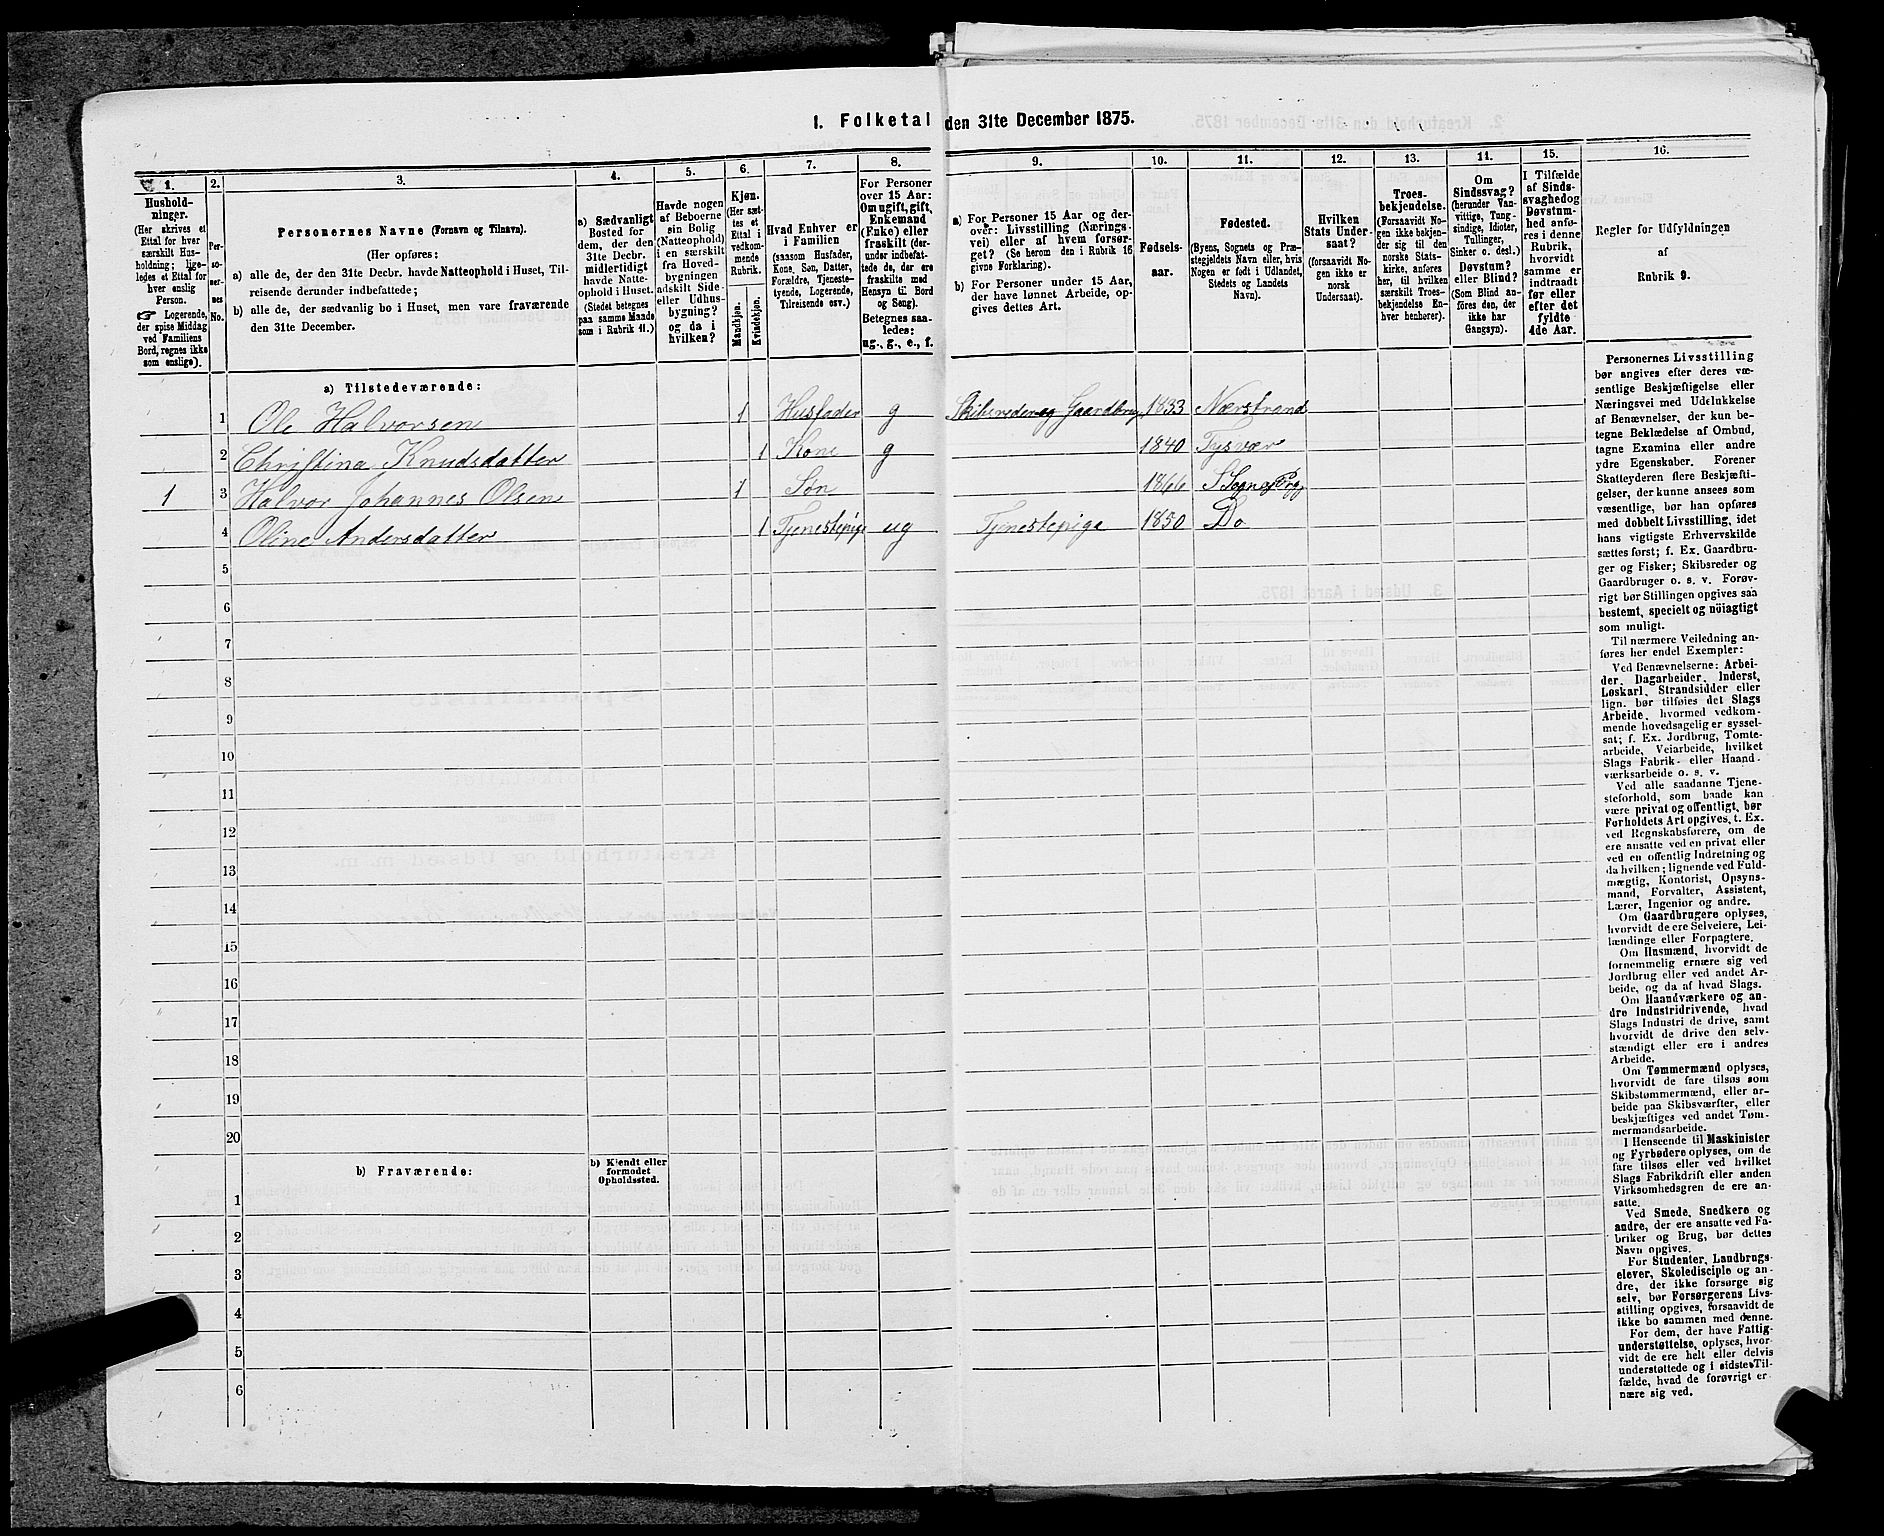 1. Folketal den 31te December 1875.
1.
2.
3.
4.
5.
6.
7.
8.
9.
10.
11.
12.
13.
14.
15.
16.
Husholdninger.
(Her skrives et
Ettal for hver
særskilt Husholdning;
ligeledes et Ettal for
hver enslig
Person.
☞ Logerende,
der spise Middag
ved Familiens
Bord, regnes ikke
som enslige).
Personernes
No.
Personernes Navne (Fornavn og Tilnavn).
(Her opføres:
a) alle de, der den 31te Decbr. havde Natteophold i Huset, Tilreisende
derunder indbefattede;
b) alle de, der sædvanlig bo i Huset, men vare fraværende
den 31te December.
a) Sædvanligt
Bosted for
dem, der den
31te Decbr.
midlertidigt
havde Natteophold
i Huset.
(Stedet betegnes
paa samme Maade
som i Rubrik 11.)
Havde nogen
af Beboerne
sin Bolig
(Natteophold)
i en særskilt
fra Hovedbygningen
adskilt Side-
eller Udhusbygning?
og da i
hvilken?
Kjøn.
(Her sættes
et
Ettal i
vedkommende
Rubrik.
Mandkjøn.
Kvindekjøn.
Hvad Enhver er
i Familien
(saasom Husfader,
Kone, Søn, Datter,
Forældre, Tjenestetyende,
Logerende,
Tilreisende osv.)
For Personer
over 15 Aar:
Om ugift, gift,
Enkemand
(Enke) eller
fraskilt (derunder
indbefattede
de, der ere
fraskilte med
Hensyn til Bord
og Seng).
Betegnes saaledes:
ug., g., e., f.
a) For Personer 15 Aar og derover:
Livsstilling (Næringsvei)
eller af hvem forsørget?
(Se herom den i Rubrik 16
givne Forklaring).
b) For Personer under 15 Aar,
der have lønnet Arbeide, opgives
dettes Art.
Fødselsaar.
Fødested.
(Byens, Sognets og Præstegjeldets
Navn eller, hvis
Nogen er født i Udlandet,
Stedets og Landets
Navn).
Hvilken
Stats Undersaat?
(forsaavidt Nogen
ikke er
norsk
Undersaat).
Troesbekjendelse.
(Forsaavidt Nogen
ikke bekjender
sig til den
norske Statskirke,
anføres
her, til hvilken
særskilt Troesbekjendelse
Enhver
henhører).
Om
Sindssvag?
(herunder Vanvittige,
Tungsindige,
Idioter,
Tullinger,
Sinker o. desl.)
Døvstum?
eller Blind?
(Som Blind anføres
den, der
ikke har
Gangsyn).
I Tilfælde
af Sindssvaghed
og
Døvstumhed
anføres
i denne
Rubrik,
hvorvidt
samme er
indtraadt
før eller
efter det
fyldte
4de Aar.
Regler for Udfyldningen
af
Rubrik 9.
a) Tilstedeværende:
1 Ole Halvorsen 1 Husfader g Skibsreder og Gaardbrug. 1833 Nærstrand
2 Christina Knudsdatter 1 Kone g 1840 Tysvær
1 3 Halvor Johannes Olsen 1 Søn 1866 S Sogn og Prg
4 Oline Andersdatter 1 Tjenestepige ug Tjenestepige 1850 Do
5
6
7
8
9
10
11
12
13
14
15
16
17
18
19
20
b) Fraværende:
b) Kjendt eller
formodet
Opholdssted.
1
2
3
4
5
6
Personernes Livsstilling
bør angives efter deres væsentlige
Beskjæftigelse eller
Næringsvei med Udelukkelse
af Benævnelser, der kun betegne
Beklædelse af Ombud,
tagne Examina eller andre
ydre Egenskaber. Forener
Skatteyderen flere Beskjæftigelser,
der kunne ansees som
væsentlige, bør han opføres
med dobbelt Livsstilling, idet
hans vigtigste Erhvervskilde
sættes først; f. Ex. Gaardbruger
og Fisker; Skibsreder og
Gaardbruger o. s. v. Forøvrigt
bør Stillingen opgives saa
bestemt, specielt og nöiagtigt
som muligt.
Til nærmere Veiledning anføres
her endel Exempler:
Ved Benævnelserne: Arbeider,
Dagarbeider, Inderst,
Løskarl, Strandsidder eller
lign. bør tilføies det Slags
Arbeide, hvormed vedkommende
hovedsagelig er sysselsat;
f. Ex. Jordbrug, Tomtearbeide,
Veiarbeide, hvilket
Slags Fabrik- eller Haandværksarbeide
o. s. v.
Ved alle saadanne Tjenesteforhold,
som baade kan
være privat og offentligt, bør
Forholdets Art opgives, t. Ex.
ved Regnskabsførere, om de
ere ansatte ved en privat eller
ved en offentlig Indretning og
da hvilken; lignende ved Fuldmægtig,
Kontorist, Opsynsmand,
Forvalter, Assistent,
Lærer, Ingeniør og andre.
Om Gaardbrugere oplyses,
hvorvidt de ere Selveiere, Leilændinge
eller Forpagtere.
Om Husmænd, hvorvidt de
fornemmelig ernære sig ved
Jordbrug eller ved andet Arbeide,
og da af hvad Slags.
Om Haandværkere og andre
Industridrivende, hvad
Slags Industri de drive, samt
hvorvidt de drive den selvstændigt
eller ere i andres
Arbeide.
Om Tømmermænd oplyses,
hvorvidt de fare tilsøs som
Skibstømmermænd, eller arbeide
paa Skibsværfter, eller
beskjæftiges ved andet Tømmermandsarbeide.
I Henseende til Maskinister
og Fyrbødere oplyses, om de
fare tilsøs eller ved hvilket
Slags Fabrikdrift eller anden
Virksomhedsgren de ere ansatte.
Ved Smede, Snedkere og
andre, der ere ansatte ved Fabriker
og Brug, bør dettes
Navn opgives.
For Studenter, Landbrugselever,
Skoledisciple og andre,
der ikke forsørge sig
selv, bør Forsørgerens Livsstilling
opgives, forsaavidt de
ikke bo sammen med denne.
For dem, der have Fattigunderstøttelse,
oplyses, hvorvidt
de ere helt eller delvis
understøttede og i sidste Tilfælde,
hvad de forøvrigt ernære
sig ved.